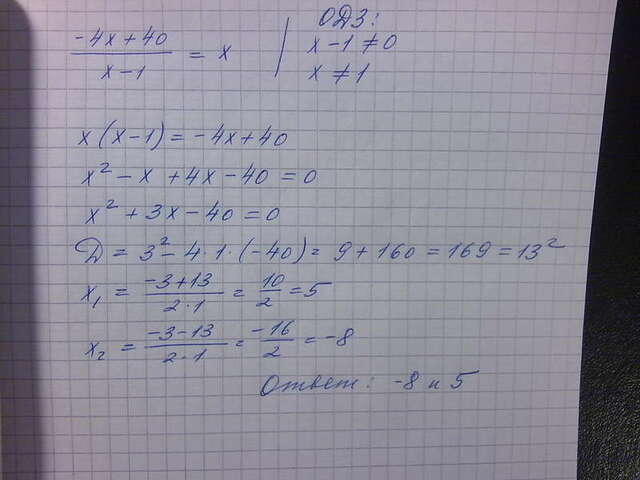 (-4x+40)/(x-1) = x
ОДЗ:
x-1≠0
x≠1
x(x-1)=-4x+40
x²-x+4x-40=0
x²+3x-40=0
D=3²-4·1·(-40)=9+160=169=13²
x₁=(-3+13)/(2·1)=10/2=5
x₂=(-3-13)/(2·1)=-16/2=-8
Ответ: -8 и 5